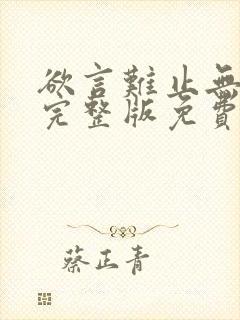 欲言難止無
完整版免費
蔡正青